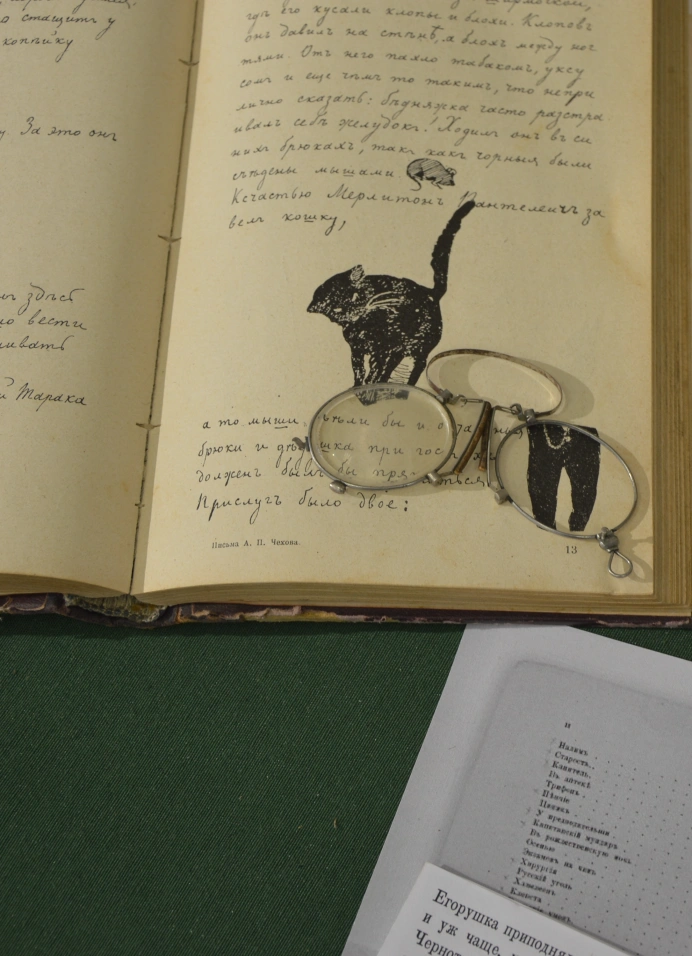 о стащить у
копѣйку
у. За это онъ
здѣсь
но вести
ивать
й Тарака
гдѣ его кусали клопы и блохи. Клоповъ
онъ давилъ на стѣнѣ, а блохъ между ног
тями. Отъ него пахло табакомъ, уксу
сомъ и еще чѣмъ то такимъ, что непри
лично сказать: бѣдняжка часто разстра
ивалъ себѣ желудокъ! Ходилъ онъ въ си
нихъ брюкахъ, такъ какъ чорныя были
съѣдены мышами
Къ счастью Мерлитонъ Пантелеичъ за
велъ кошку,
а то мыши съѣли бы и
брюки и дѣдушка при
долженъ былъ бы
Прислугъ было двое:
Письма А. П. Чехова.
13
Налимъ
Старость
Канитель
Въ аптекѣ
Трифонъ
Циникъ
У предводительши
Капитанскій мундиръ
Въ рождественскую ночь
Осенью
Экзаменъ на чинъ
Хирургія
Русскій уголь
Хамелеонъ
Клевета
Егорушка приподня
и уж чаще,